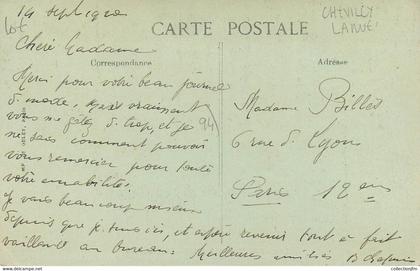 14 Sept 1920
Lot
CARTE POSTALE
CHEVILLY
LARUE
Chère Madame
Correspondance
Adresse
Merci pour votre beau journal
de mode, vraiment
vous me gâtez de trop, et je
94
ne sais comment pouvoir
vous remercier pour toute
votre amabilité.
Je vais beaucoup mieux
depuis que je suis ici, et espère revenir tout à fait
vaillante au bureau. Meilleures amitiés B
Madame Billet
6 rue de Lyon
Paris 12 em
collectionsfm